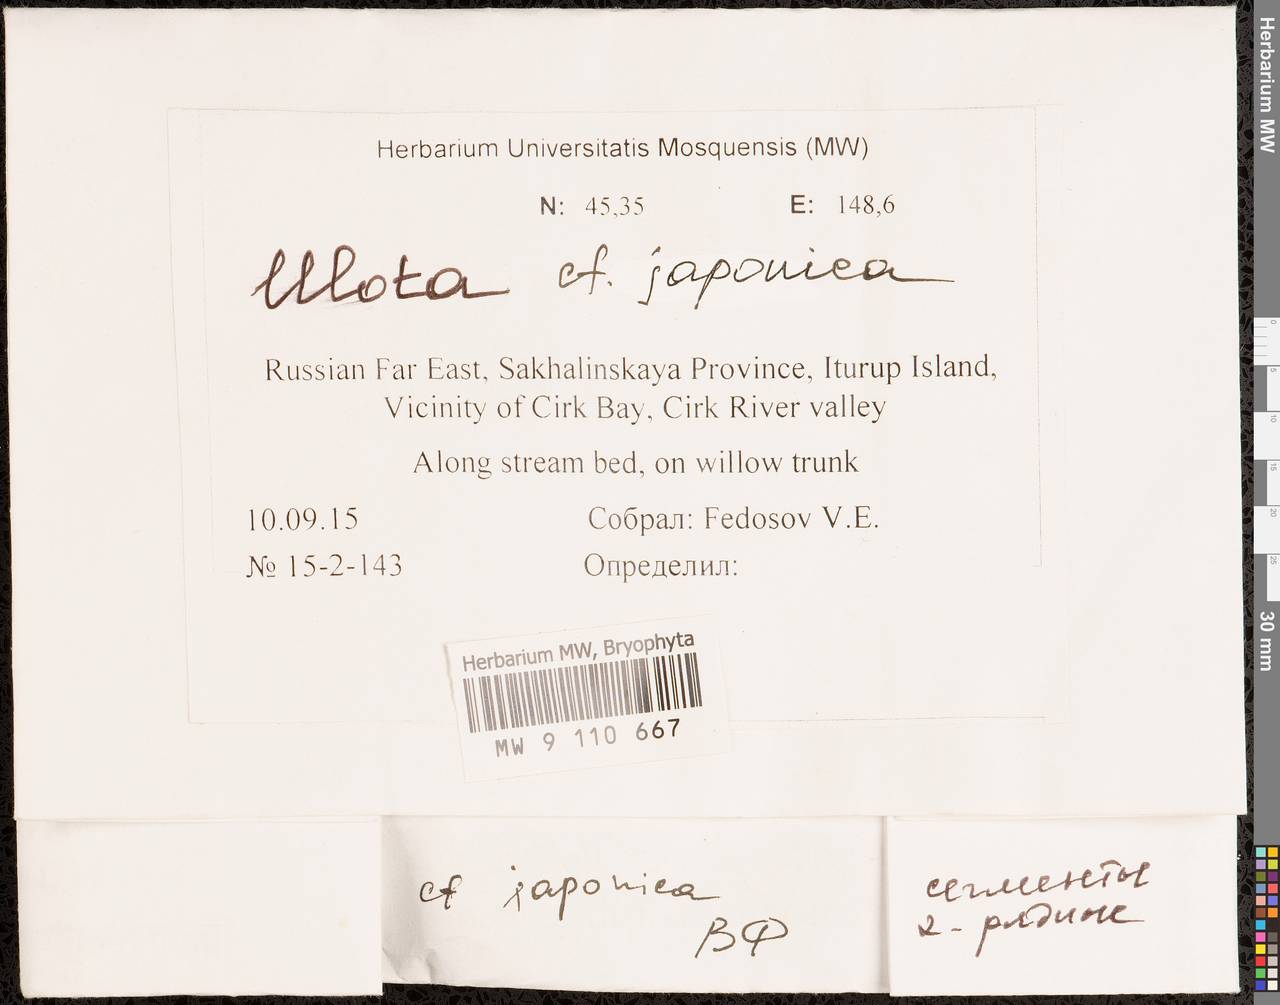 Herbarium Universitatis Mosquensis (MW)
N: 45,35 E: 148,6
Ulota cf. japonica
Russian Far East, Sakhalinskaya Province, Iturup Island,
Vicinity of Cirk Bay, Cirk River valley
Along stream bed, on willow trunk
10.09.15 Собрал: Fedosov V.E.
№ 15-2-143 Определил:
Herbarium MW, Bryophyta
MW 9 110 667
cf japonica
ВФ
сегменты
2-рядные
Herbarium MW
0
5
10
15
20
25
30 mm